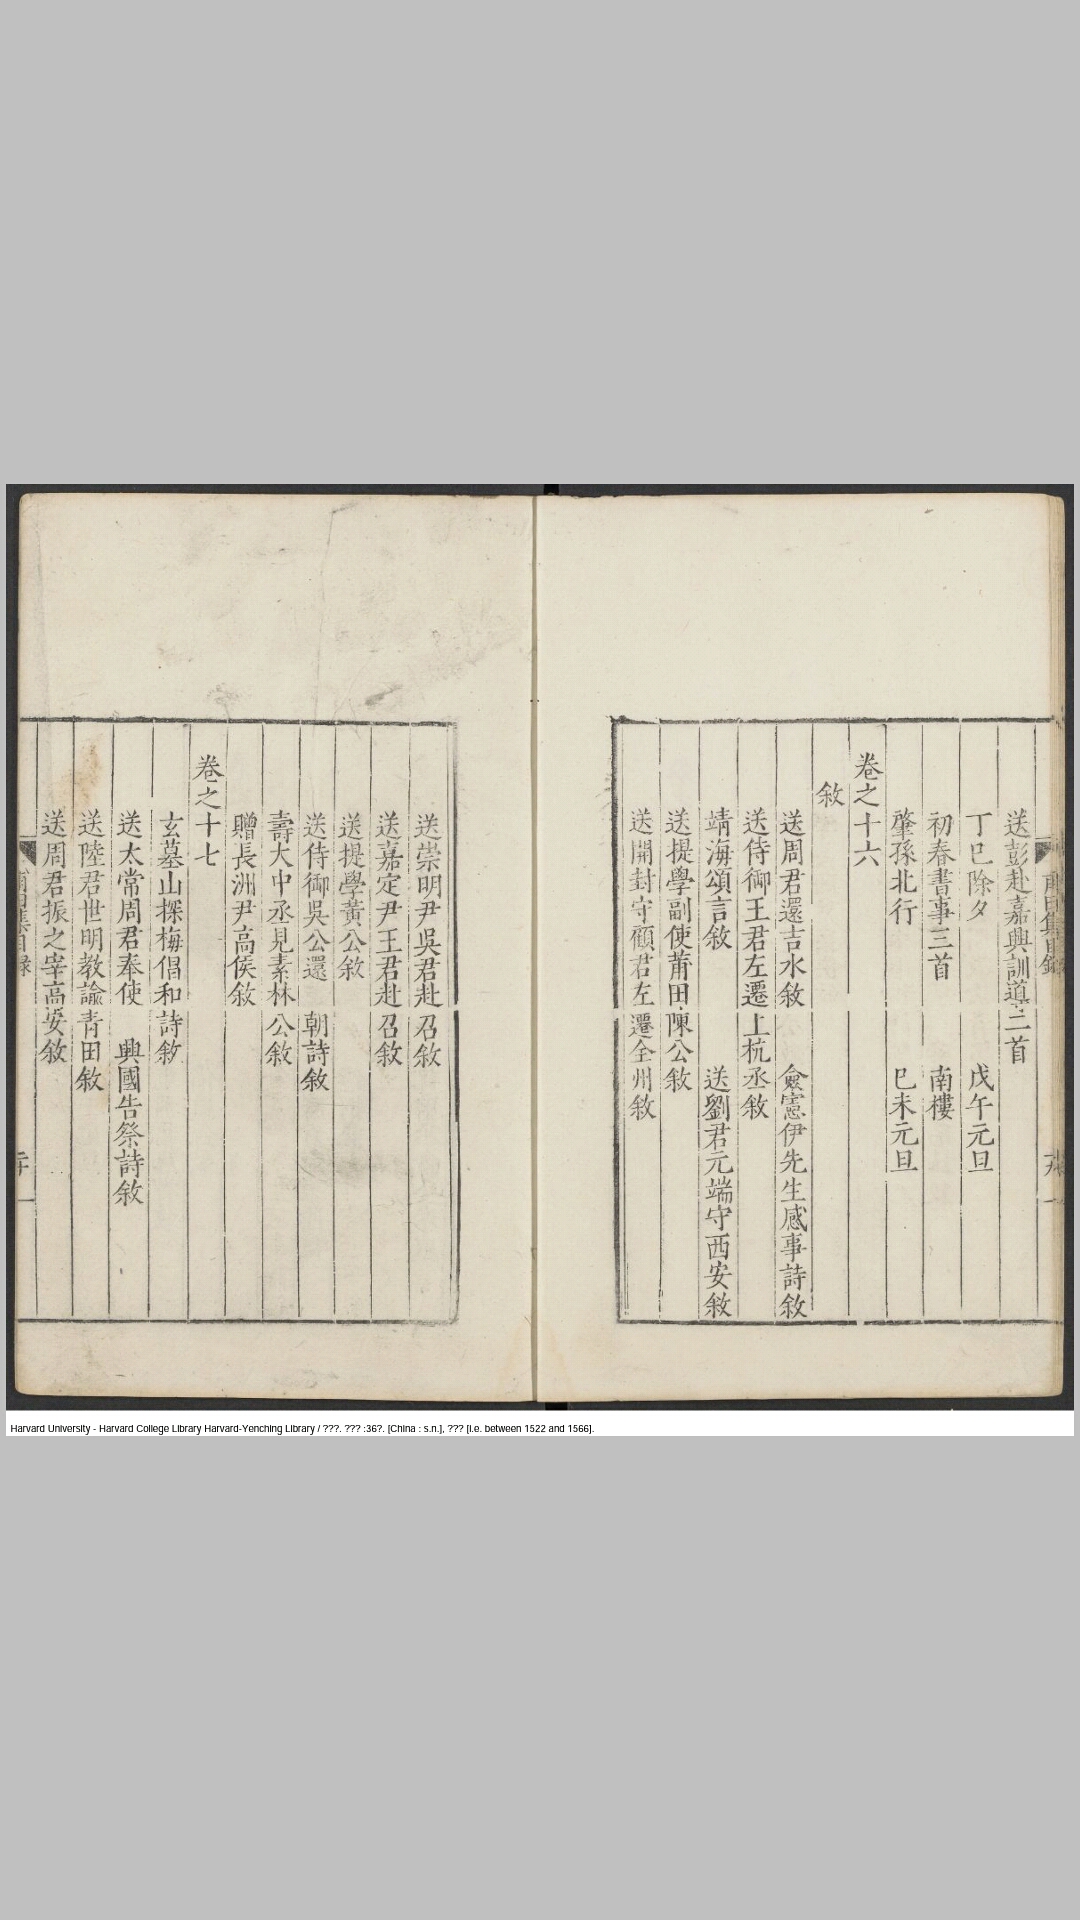 送彭赴嘉興訓導二首
丁巳除夕 戊午元旦
初春書事三首 南樓
肇孫北行 巳未元旦
卷之十六
敘
送周君還吉水敘 僉憲伊先生感事詩敘
送侍御王君左遷上杭丞敘
靖海頌言敘 送劉君元端守西安敘
送提學副使莆田陳公敘
送開封守顧君左遷全州敘
送崇明尹吳君赴召敘
送嘉定尹王君赴召敘
送提學黃公敘
送侍御吳公還 朝詩敘
壽大中丞見素林公敘
贈長洲尹高侯敘
卷之十七
玄墓山探梅倡和詩敘
送太常周君奉使 興國告祭詩敘
送陸君世明教諭青田敘
送周君振之宰高安敘
Harvard University - Harvard College Library Harvard-Yenching Library / ???. ??? :36?. [China : s.n.], ??? [i.e. between 1522 and 1566].